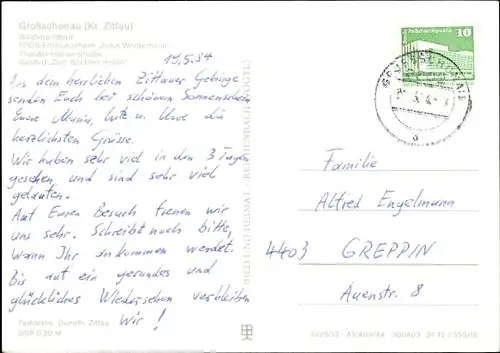 Großschönau (Kr. Zittau)
Waldstrandbad
FDGB-Erholungsheim
Theodor-Haebler-Straße
Gasthof
19.5.84
Aus dem herzlichen Zittauer Gebirge
senden Euch bei schönem Sonnenschein
Eure Maria, Lutz u. Uwe die
herzlichsten Grüsse.
Wir haben sehr viel in den 3 Tagen
gesehen und sind sehr viel
gelaufen.
Auf Euren Besuch freuen wir
uns sehr. Schreibt noch bitte,
wann Ihr ankommen werdet.
Bis auf ein gesundes und
glückliches Wiedersehen verbleiben
Wir!
Farbfotos: Zittau
BILD UND HEIMAT · REICHENBACH (VOGTL)
10
GROSSSCHÖNAU
Familie
Alfred Engelmann
4403 GREPPIN
Auenstr. 8